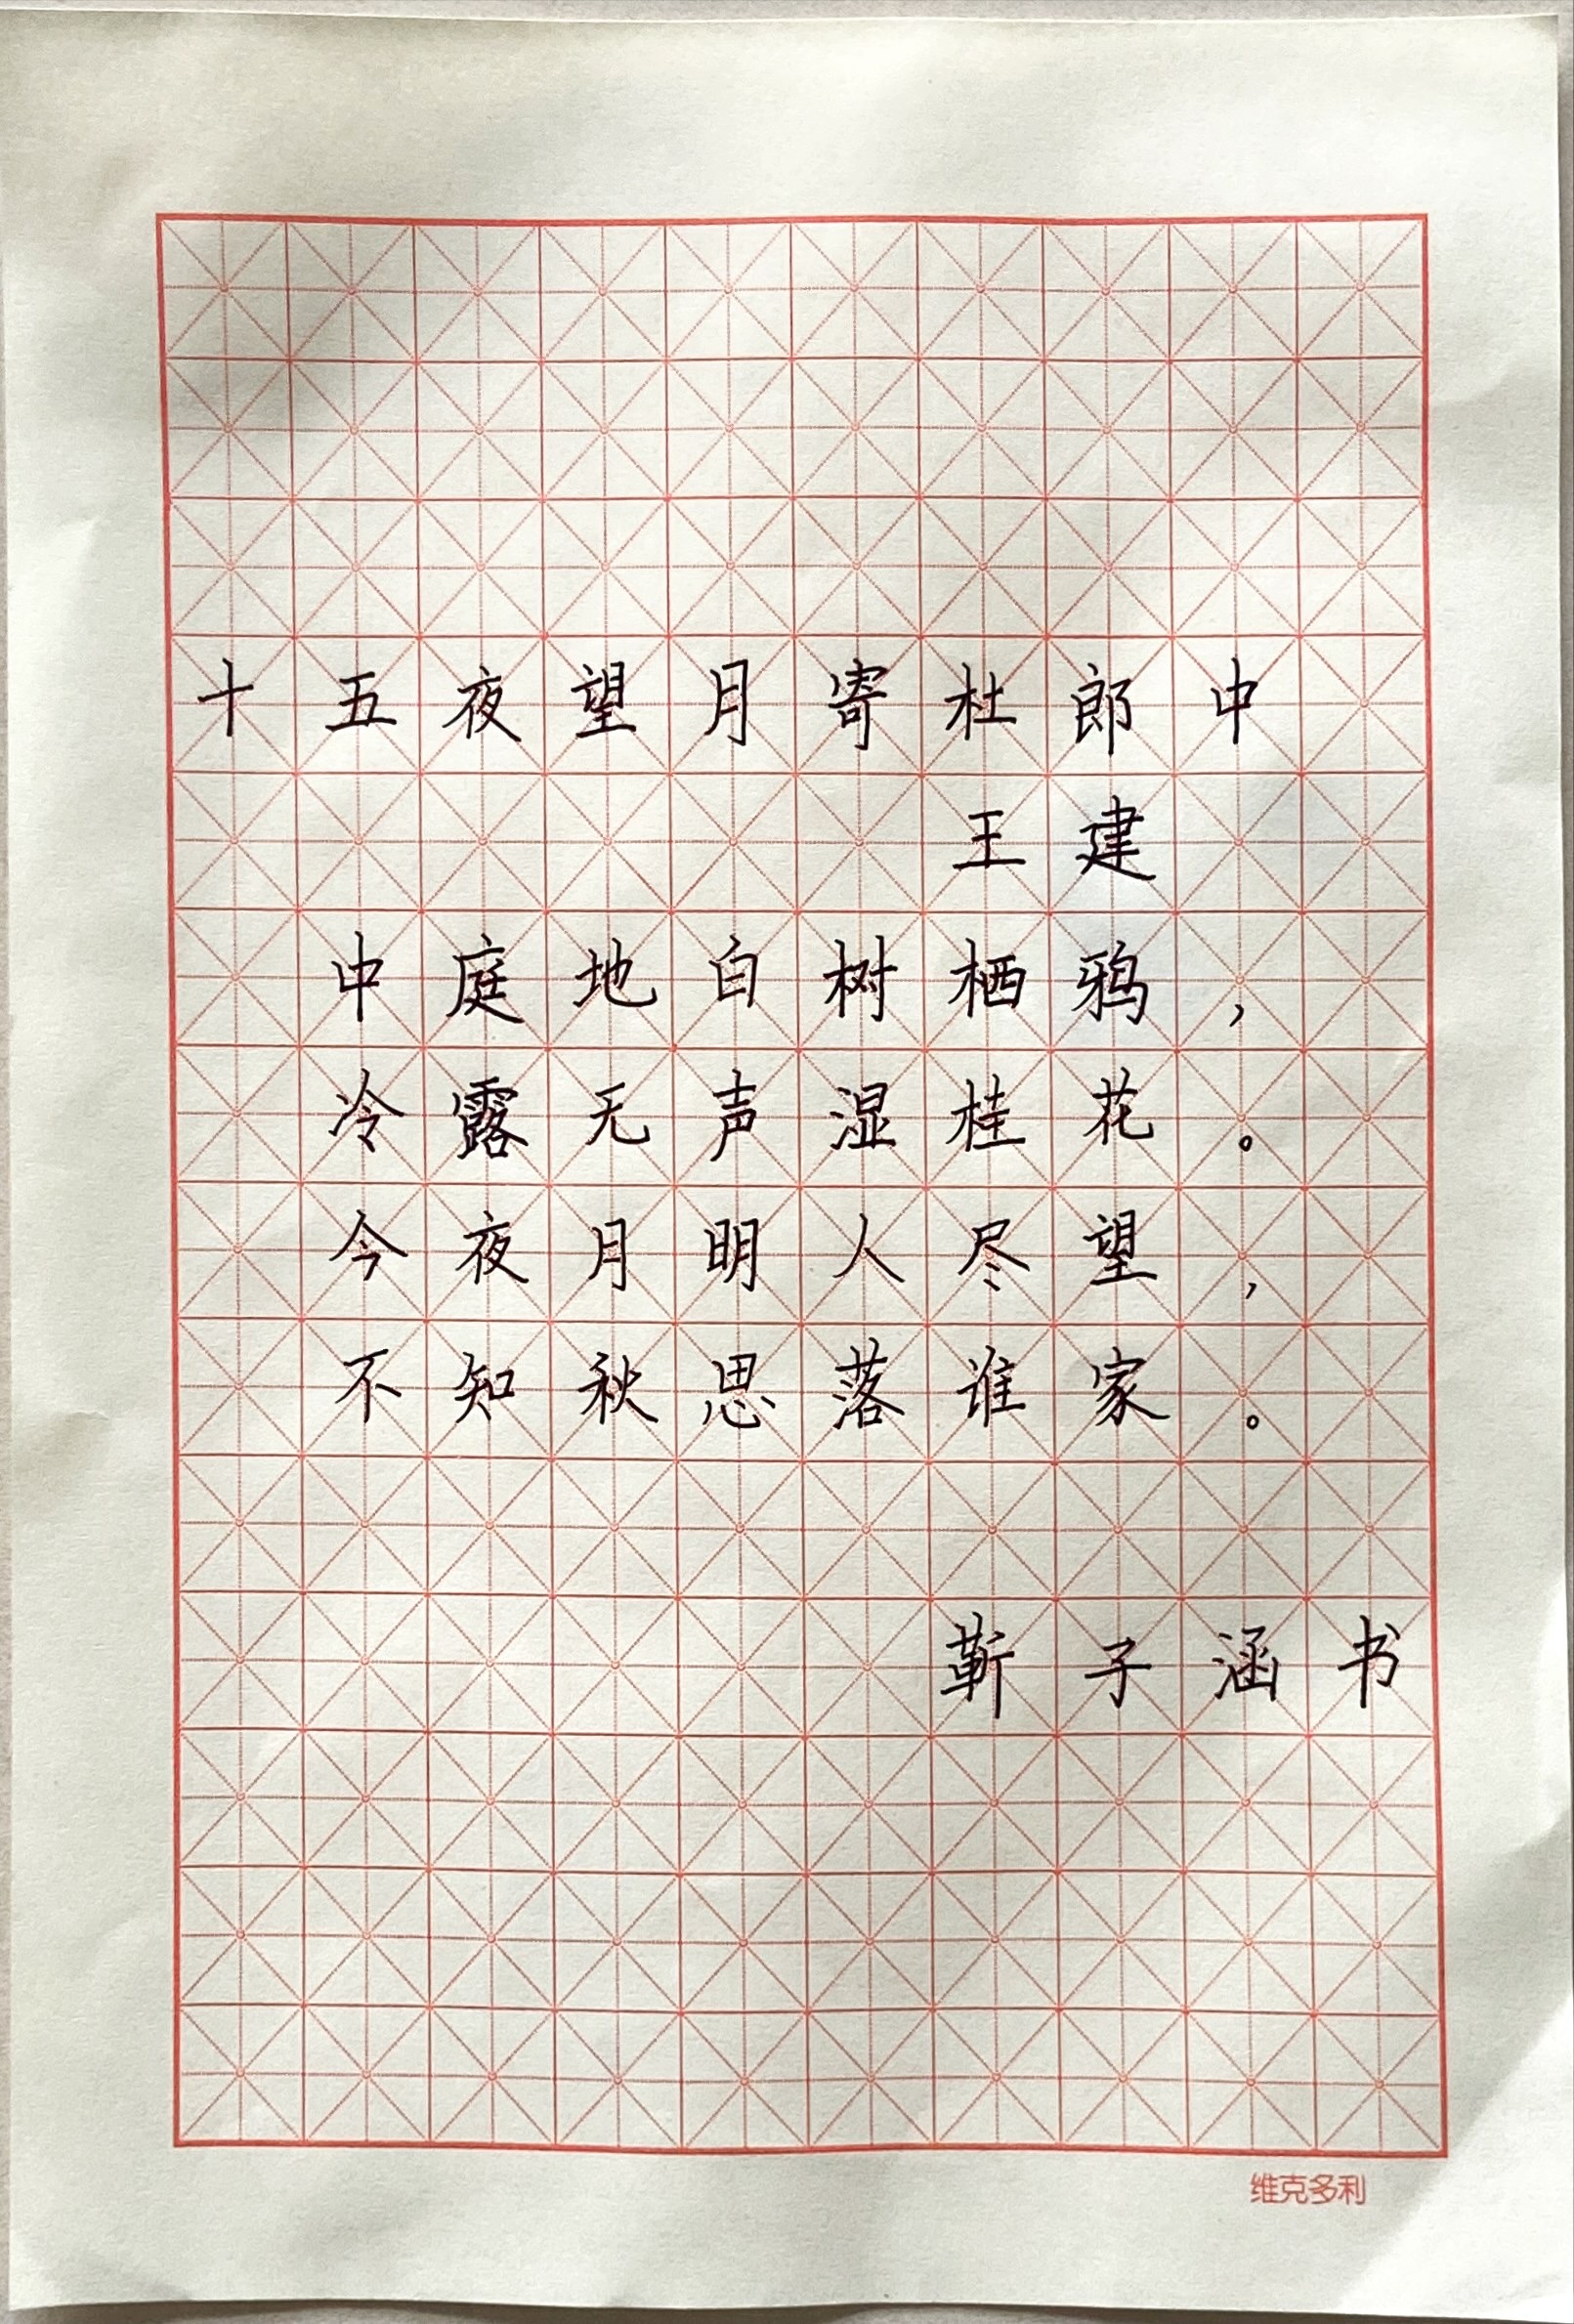 十五夜望月寄杜郎中
王建
中庭地白树栖鸦，
冷露无声湿桂花。
今夜月明人尽望，
不知秋思落谁家。
靳子涵书
维克多利